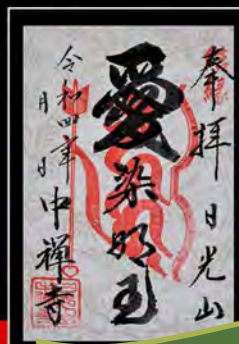 奉拝 日光山
愛染明王
令和四年 月 日
中禅寺